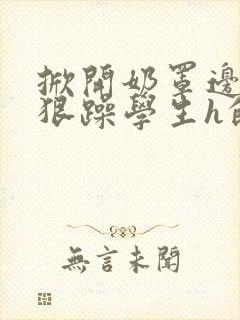 掀開奶罩邊
狠躁學生h
無言未聞